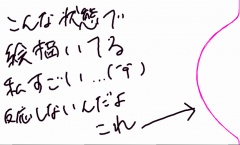 こんな状態で
絵描いてる
私すごい…(´ｰ`)
反応しないんだよ
これ